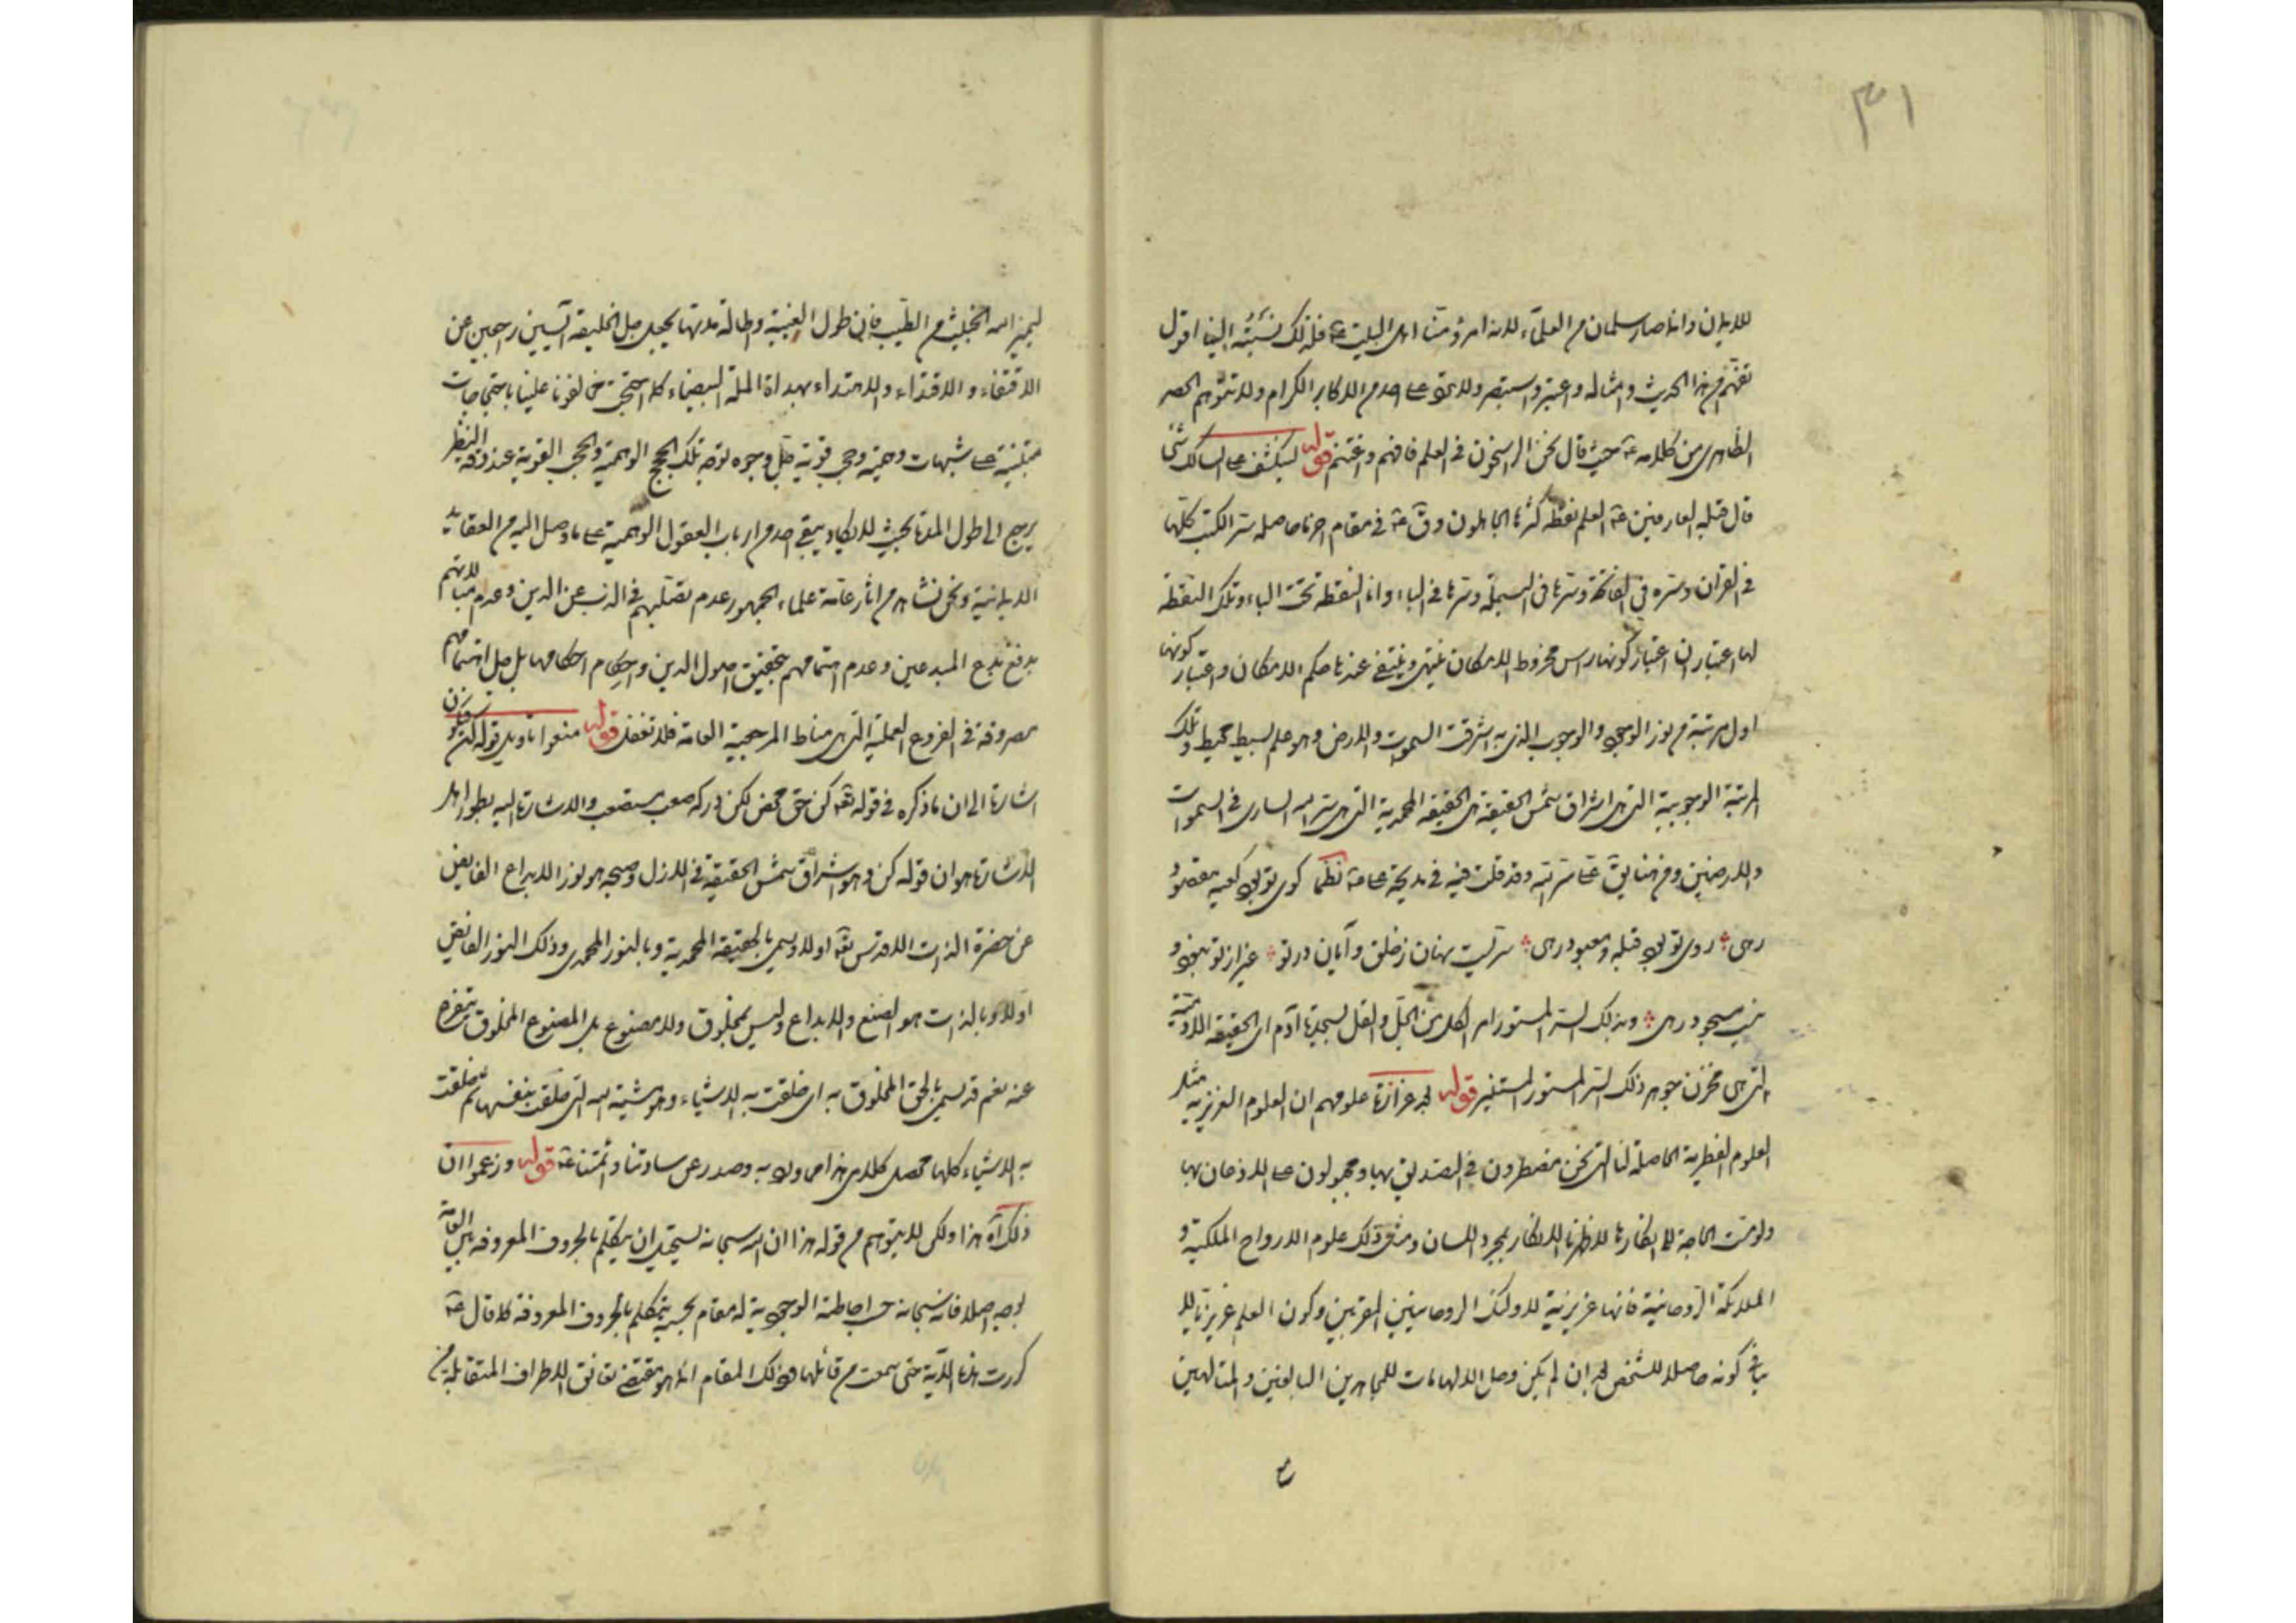 ٣١
للايمان وانما صار سلمان من العلماء لانه امرؤ منا اهل البيت ع فلذلك نسبته الينا اقول
تفهم من هذا الحديث وامثاله واعتبر واستبصر ولا من الاكابر الكرام ولا تتوهم الحصر
الظاهرى من كلامه ع حيث قال نحن الراسخون فى العلم فافهم واغتنم قوله لينكشف على السالك شئ
قال قبلة العارفين ع العلم نقطة كثرها الجاهلون وق ع فى مقام اخر ما حاصله سر الكتب كلها
فى القران وسره فى الفاتحة وسرها فى البسملة وسرها فى الباء وانا النقطة تحت الباء وتلك النقطة
لها اعتباران اعتبار كونها راس مخروط الامكان ينتهى وينتفى عندها حكم الامكان واعتبار كونها
اول مرتبة من نور الوجود والوجوب الذى به اشرقت السموات والارض وهو علم بسيط محيط وتلك
المرتبة الوجوبية التى هى اشراق شمس الحقيقة هى الحقيقة المحمدية التى هى سر الله السارى فى السموات
والارضين ومن هنا يق على سر الله وقد قلت فيه فى مديحة على ع نظما كوى تو بود كعبه مقصود
رهى روى تو بود قبله ومعبود رهى سريست نهان ز خلق وآيان در تو غير از تو نبود و
نيست مسجود رهى وبذلك السر المستور امر الكل من الجل والقل بسجدة آدم اى الحقيقة الادمية
التى هى مخزن جوهر ذلك السر المستور المستنير قوله لجد غزارة علومهم ان العلوم الغريزية مثل
العلوم الفطرية الحاصلة لنا التى نحن مضطرون فى التصديق بها ومجبولون على الاذعان بها
ولو مست الحاجة الى انكارها لاظهرنا الانكار بمجرد اللسان ومثل ذلك علوم الارواح الملكية و
الملائكة الروحانية فانها غريزية لاولئك الروحانيين المقربين وكون العلم غريزيا لا
ينافى كونه حاصلا للشخص بعد ان لم يكن وحال الالهامات للمجاهدين البالغين والمتالهين
ع
ليميز الله الخبيث من الطيب فان طول الغيبة واطالة مدتها يجعل جل الخليقة آيسين راجعين عن
الاقتفاء والاقتداء والاهتداء بهداة الملة البيضاء كلا احتجت مخالفونا علينا باحتجاجات
مبتنية على شبهات وهمية وحجب قوية جل وجوه توجه تلك الحجج الوهمية والحجب القوية عند دقة النظر
يرجع الى طول المدة بحيث لا يكاد يبقى احد من ارباب العقول الوهمية على ما وصل اليه من العقايد
الايمانية ونحن نشاهد من اثار عامة علماء الجمهور عدم تصلبهم فى الذب عن الدين وعدم مبالاتهم
بدفع بدع المبدعين وعدم اهتمامهم بتحقيق اصول الدين واحكام احكامها بل جل اهتمامهم
مصروفة فى الفروع العملية التى هى مناط المرجعية العامة فلا تغفل قوله منعوا تاويل قوله كن فيكون
اشارة الى ان ما ذكره فى قوله تعه كن حق محض لكن دركه صعب مستصعب والاشارة اليه بطور اهل
الاشارة هو ان قوله كن هو اشراق شمس الحقيقة فى الازل وصبحه هو نور الابداع الفايض
عن حضرة الذات الاقدس تعه اولا ويسمى بالحقيقة المحمدية وبالنور المحمدى وذلك النور الفايض
اولا وبالذات هو الصنع والابداع وليس بمخلوق ولا مصنوع بل المصنوع المخلوق يتفرع
عنه نعم قد يسمى بالحق المخلوق به اى خلقت به الاشياء وهو مشية الله التى خلقت بنفسها ثم خلقت
به الاشياء كلها محصل كلامى هذا ما ورد به وصدر عن ساداتنا وائمتنا ع قوله وزعموا ان
ذلك آه هذا ولكن لا يتوهم من قوله هذا ان الله سبحانه يستحيل ان يتكلم بالحروف المعروفة بين العامة
بوجه اصلا فانه سبحانه حسب احاطته الوجودية له مقام بحسبه يتكلم بالحروف المعروفة كما قال ع
كررت هذه الآية حتى سمعت من قائلها وذلك المقام انما هو مقتضى تعانق الاطراف المتقابلة من